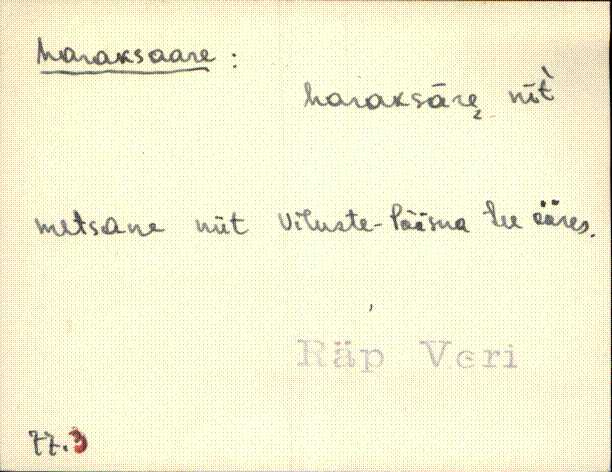 haraksaare:
haraksāre̮ nīt̀
metsane niit Viluste-Pääsna tee ääres.
Räp Veri
77.3